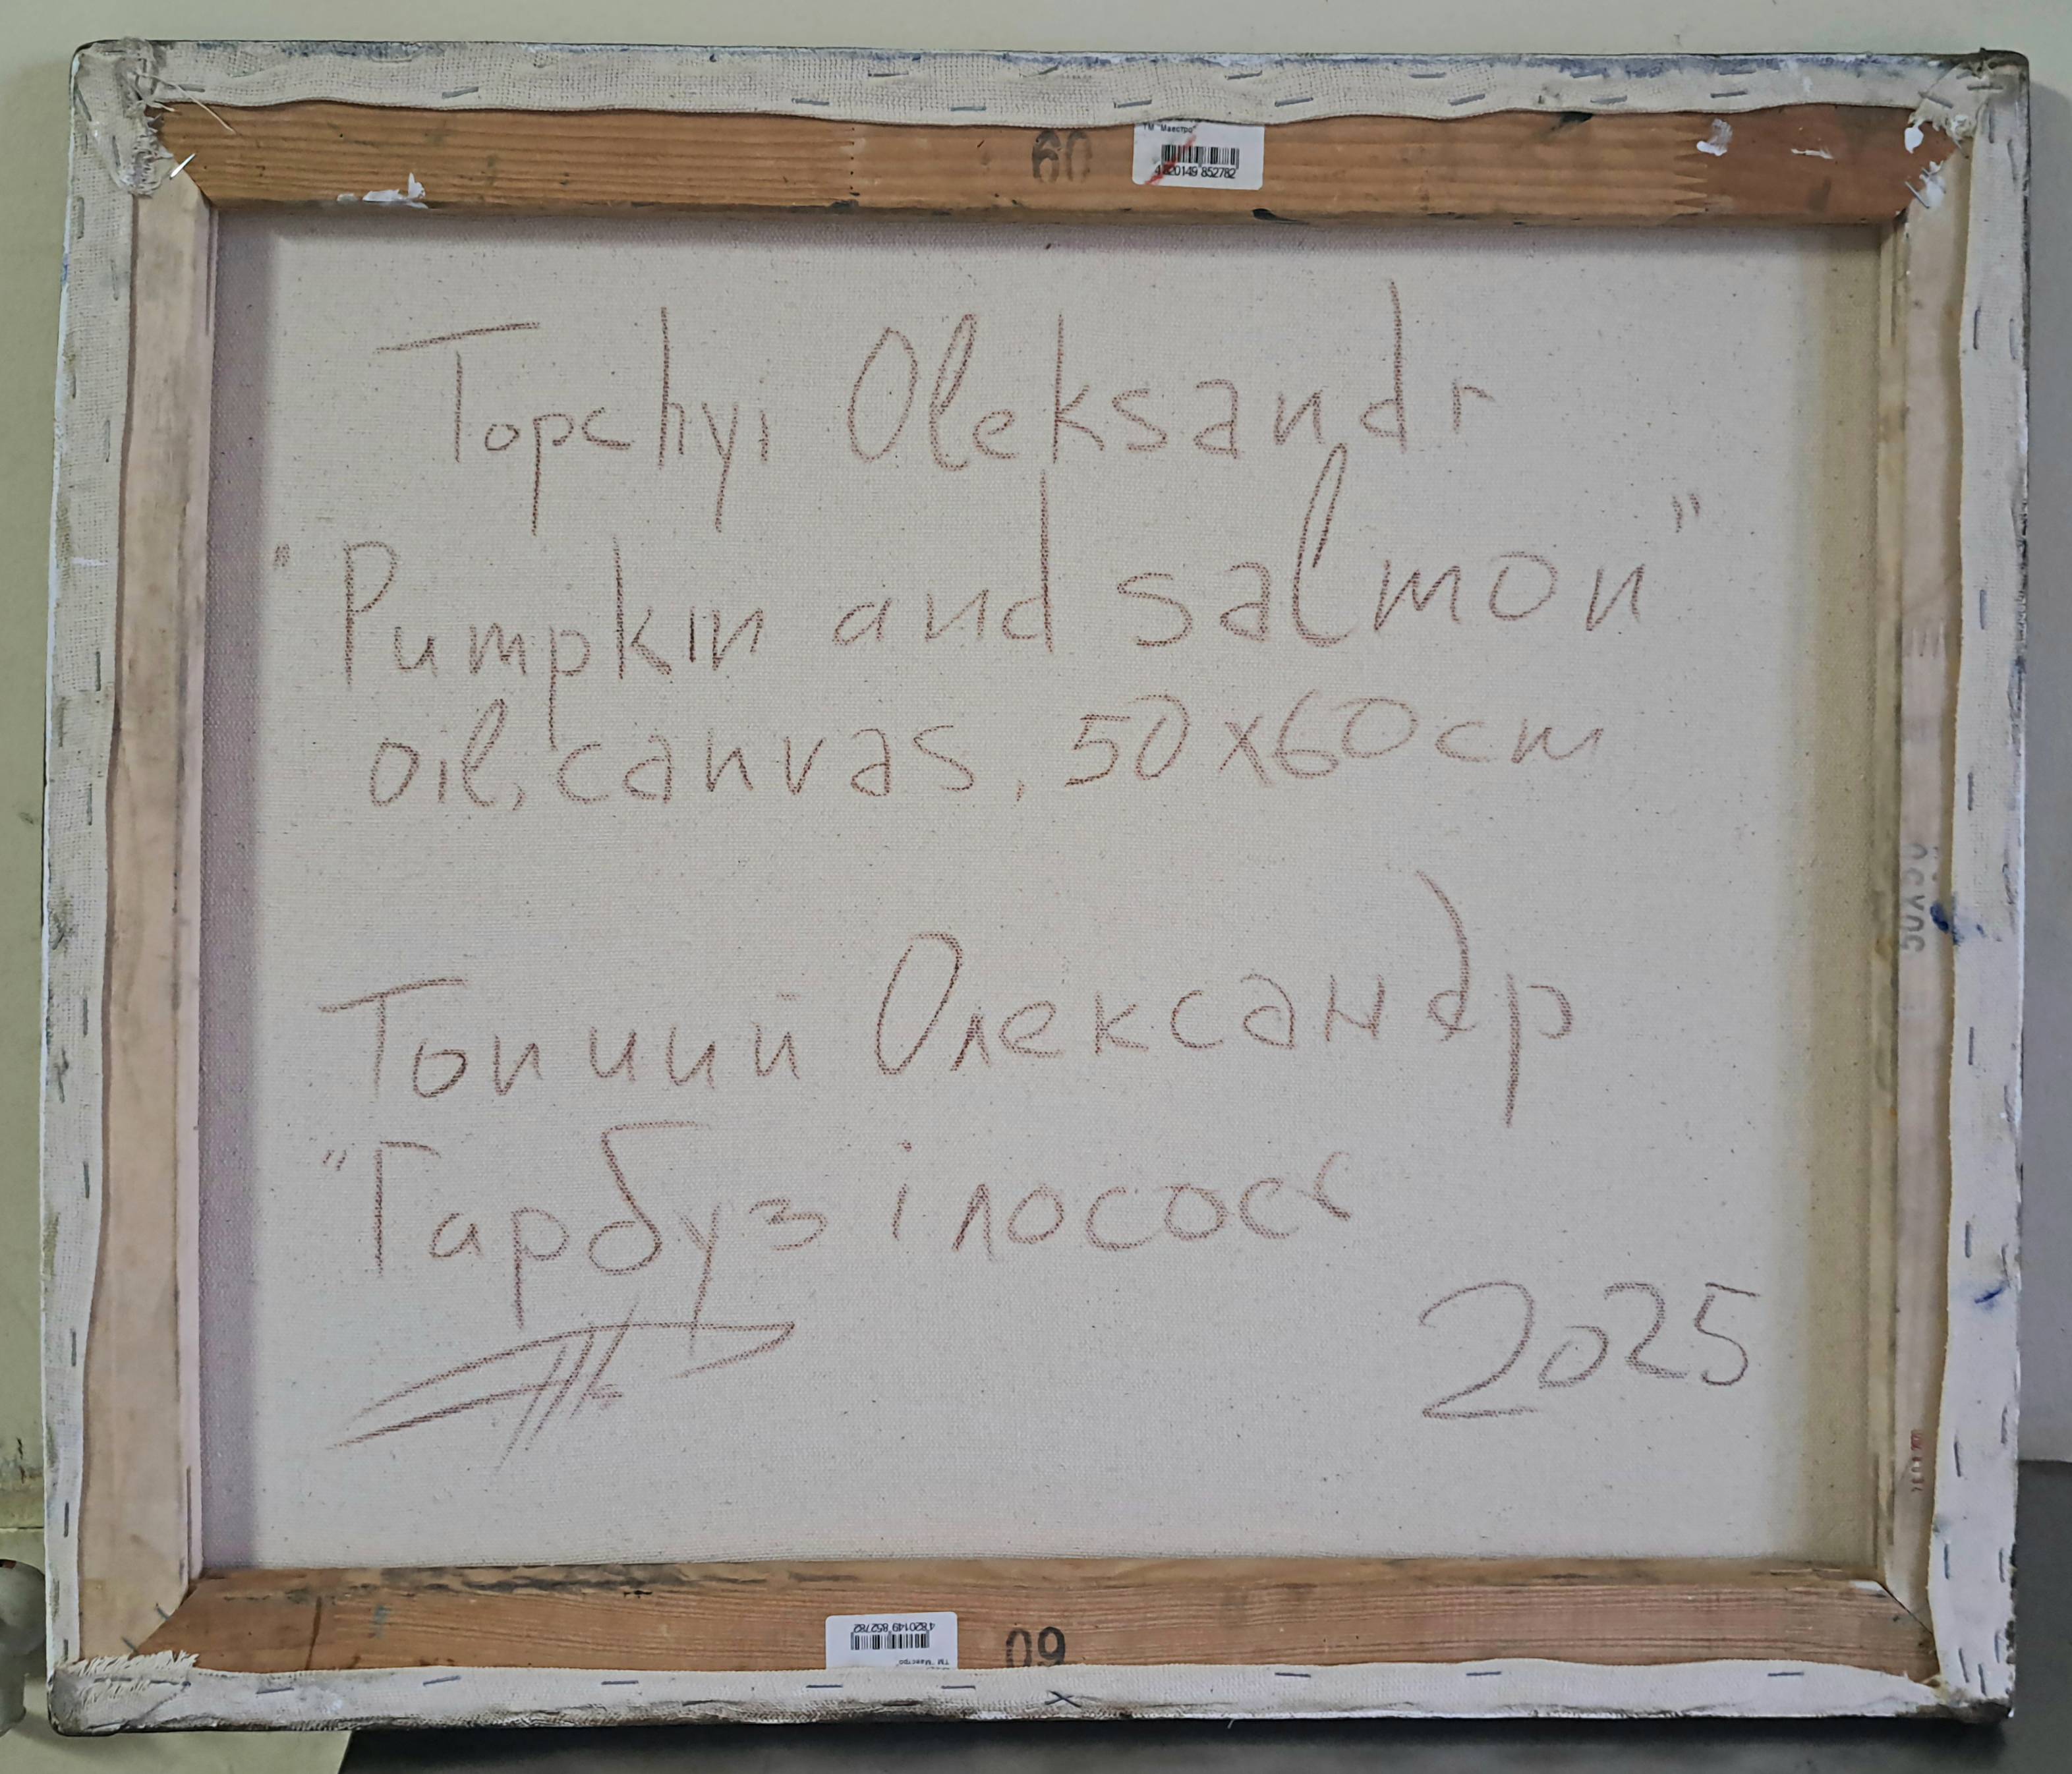 ТМ "Маестро"
60
4 820149 852782
Topchyi Oleksandr
"Pumpkin and salmon"
oil, canvas, 50x60cm
Топчий Олександр
"Гарбуз і лосось
2025
50X50
4 820149 852782
ТМ "Маестро"
60